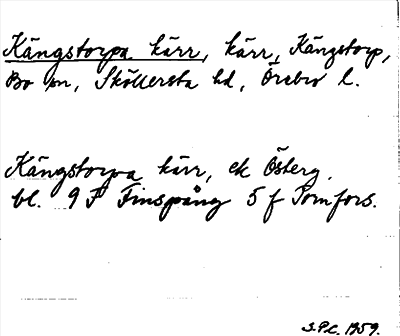 Kängstorpa kärr, kärr, Kängstorp,
Bo sn, Sköllersta hd, Örebro l.
Kängstorpa kärr, ek Österg.
bl. 9 F Finspång 5 f Tomfors.
S.P.C. 1959.